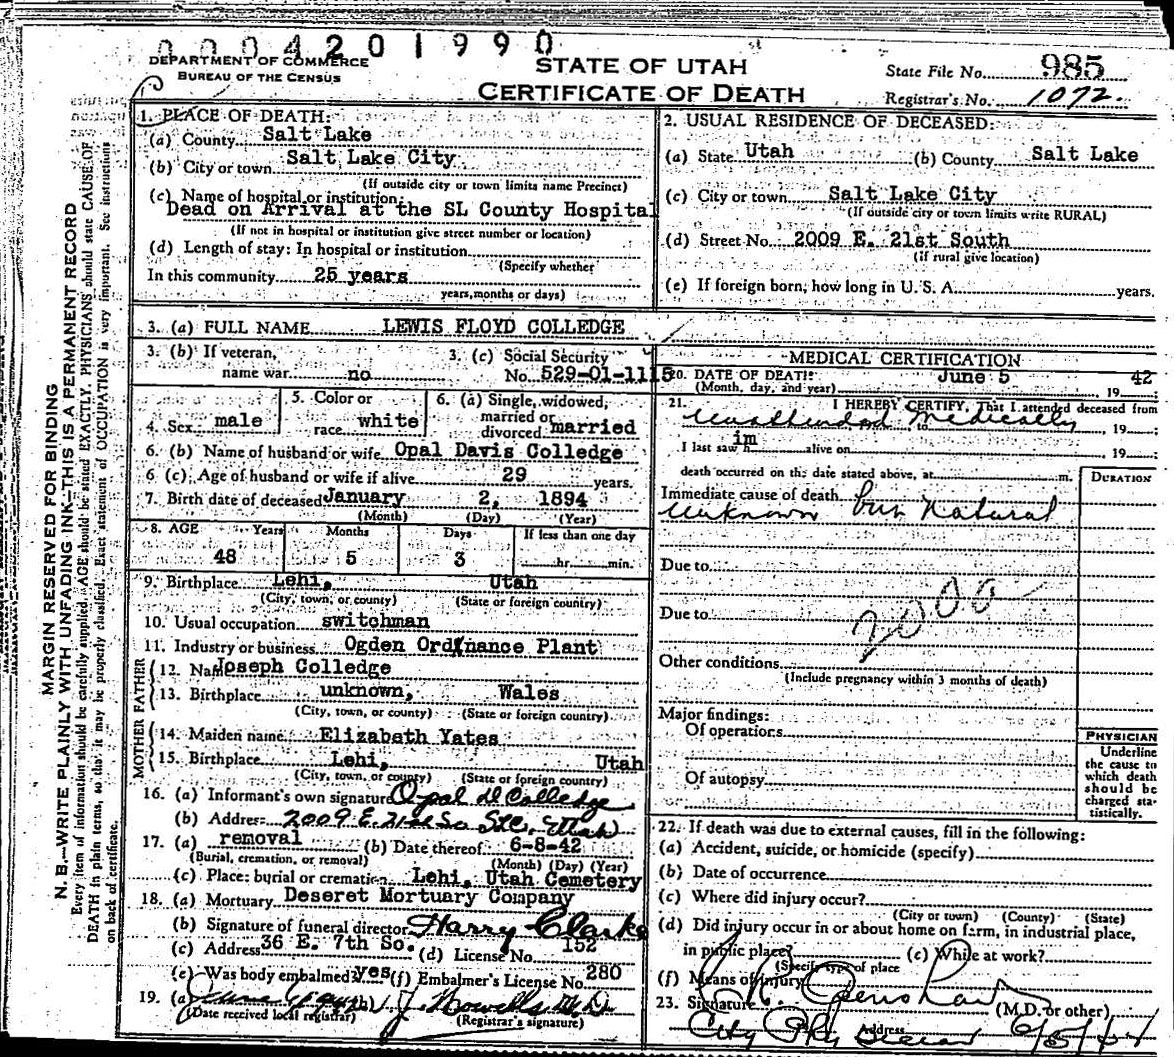 0004201990
DEPARTMENT OF COMMERCE
BUREAU OF THE CENSUS
STATE OF UTAH
CERTIFICATE OF DEATH
State File No. 985
Registrar's No. 1072.
1. PLACE OF DEATH:
(a) County Salt Lake
(b) City or town Salt Lake City
(If outside city or town limits name Precinct)
(c) Name of hospital or institution:
Dead on Arrival at the SL County Hospital
(If not in hospital or institution give street number or location)
(d) Length of stay: In hospital or institution
(Specify whether
In this community 25 years
years, months or days)
2. USUAL RESIDENCE OF DECEASED:
(a) State Utah (b) County Salt Lake
(c) City or town Salt Lake City
(If outside city or town limits write RURAL)
(d) Street No. 2009 E. 21st South
(If rural give location)
(e) If foreign born, how long in U. S. A. years.
3. (a) FULL NAME LEWIS FLOYD COLLEDGE
3. (b) If veteran,
name war no
3. (c) Social Security
No. 529-01-1115
4. Sex male
5. Color or
race white
6. (a) Single, widowed,
married or
divorced married
6. (b) Name of husband or wife Opal Davis Colledge
6 (c) Age of husband or wife if alive 29 years.
7. Birth date of deceased January 2, 1894
(Month) (Day) (Year)
8. AGE Years Months Days If less than one day
48 5 3 hr. min.
9. Birthplace Lehi, Utah
(City, town, or county) (State or foreign country)
10. Usual occupation switchman
11. Industry or business Ogden Ordinance Plant
FATHER
12. Name Joseph Colledge
13. Birthplace unknown, Wales
(City, town, or county) (State or foreign country)
MOTHER
14. Maiden name Elizabeth Yates
15. Birthplace Lehi, Utah
(City, town, or county) (State or foreign country)
16. (a) Informant's own signature Opal D Colledge
(b) Address 2009 E. 21st So SLC, Utah
17. (a) removal (b) Date thereof 6-8-42
(Burial, cremation, or removal) (Month) (Day) (Year)
(c) Place: burial or cremation Lehi, Utah Cemetery
18. (a) Mortuary Deseret Mortuary Company
(b) Signature of funeral director Harry Clarke
(c) Address 36 E. 7th So. (d) License No. 152
(e) Was body embalmed? yes (f) Embalmer's License No. 280
19. (a) June (b) J. Howells M.D.
(Date received local registrar) (Registrar's signature)
MEDICAL CERTIFICATION
20. DATE OF DEATH: June 5
(Month, day, and year) 19 42
21. I HEREBY CERTIFY, That I attended deceased from
Unattended Medically 19 ;
I last saw him alive on 19 ;
death occurred on the date stated above, at m.
DURATION
Immediate cause of death
Unknown but Natural
Due to
Due to
2000
Other conditions
(Include pregnancy within 3 months of death)
Major findings:
Of operations
Of autopsy
PHYSICIAN
Underline
the cause to
which death
should be
charged sta-
tistically.
22. If death was due to external causes, fill in the following:
(a) Accident, suicide, or homicide (specify)
(b) Date of occurrence
(c) Where did injury occur?
(City or town) (County) (State)
(d) Did injury occur in or about home on farm, in industrial place,
in public place? (e) While at work?
(Specify type of place
(f) Means of injury
23. Signature (M.D. or other)
City Physician Address 6/5/42
MARGIN RESERVED FOR BINDING
N. B.—WRITE PLAINLY WITH UNFADING INK—THIS IS A PERMANENT RECORD
Every item of information should be carefully supplied. AGE should be stated EXACTLY. PHYSICIANS should state CAUSE OF
DEATH in plain terms, so that it may be properly classified. Exact statement of OCCUPATION is very important. See instructions
on back of certificate.